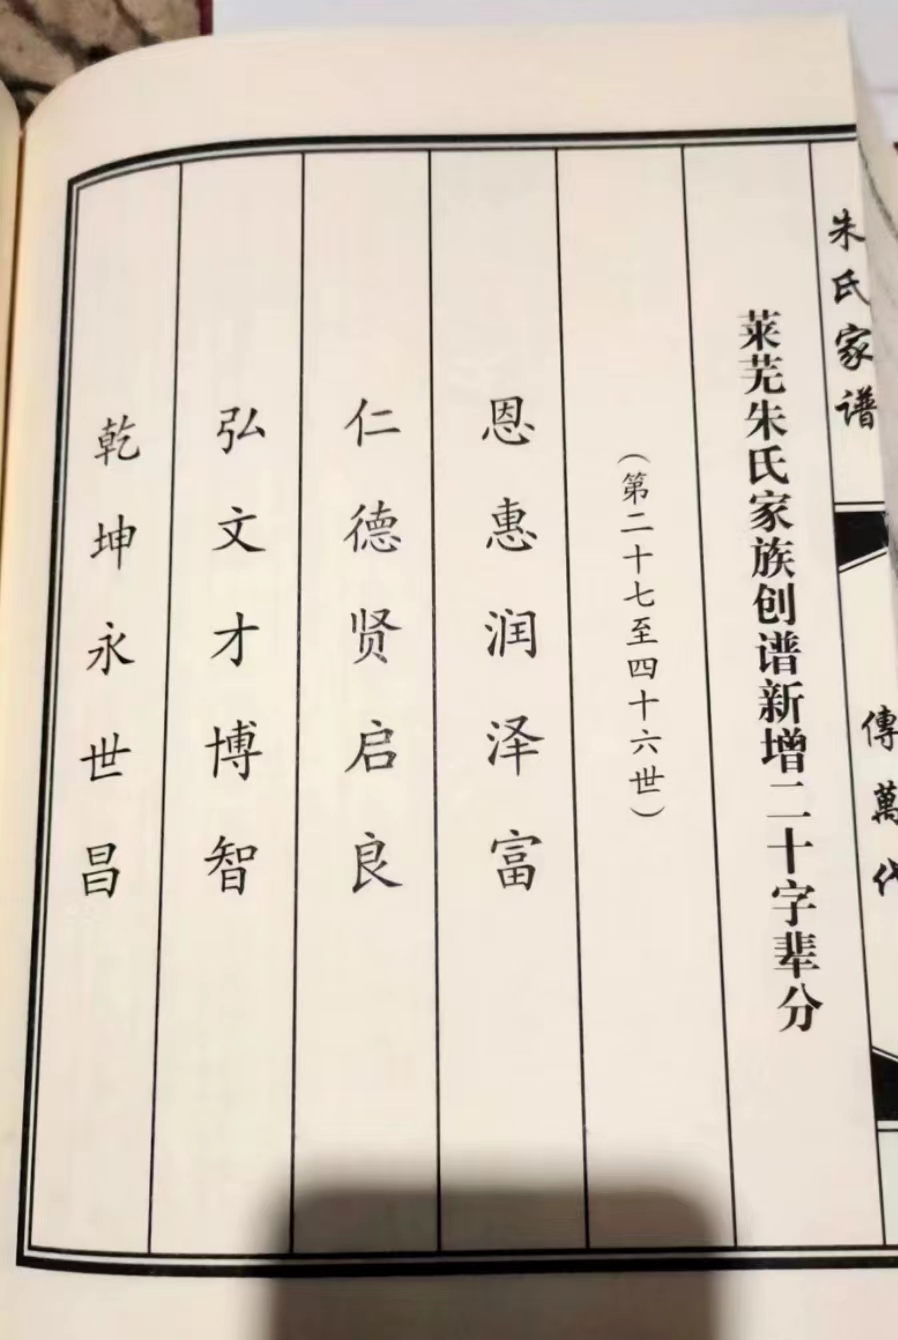 朱氏家谱
傳萬代
莱芜朱氏家族创谱新增二十字辈分
（第二十七至四十六世）
恩惠润泽富
仁德贤启良
弘文才博智
乾坤永世昌